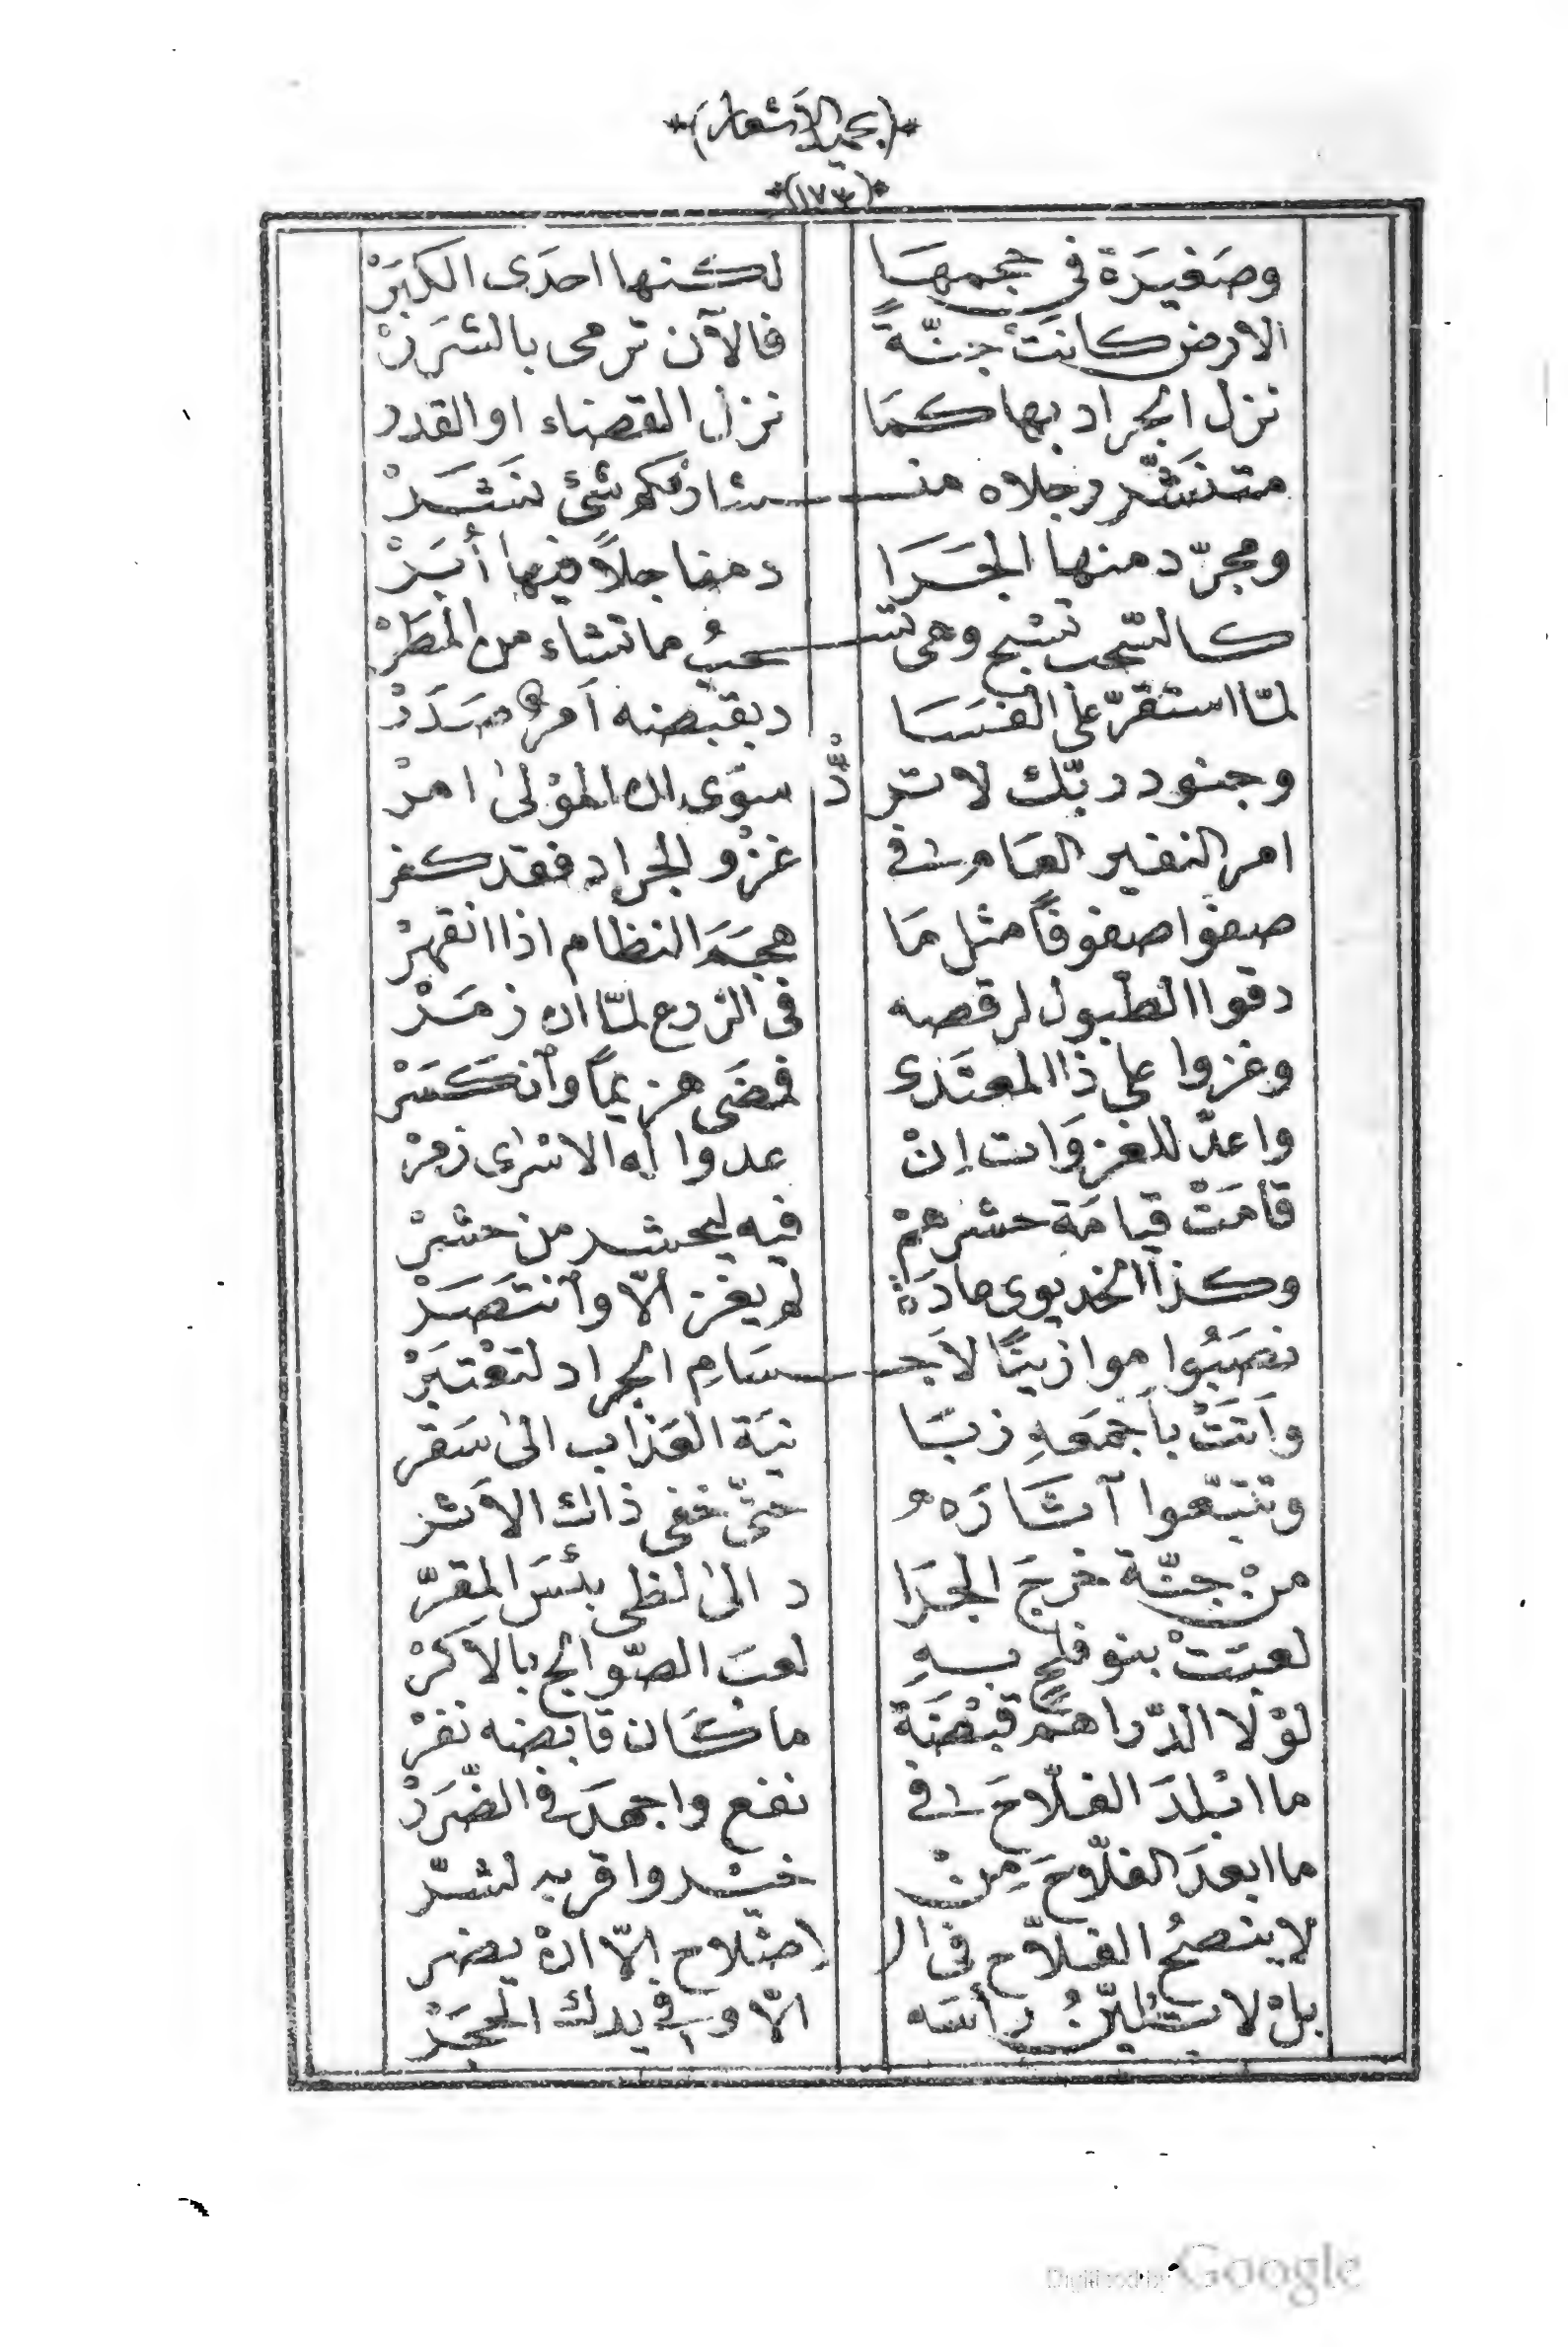 *(بحر الأشعار)*
*(١٧٣)*
وصَغيرَة في حجمهَا لكنها احدَى الكبَرْ
الارض كانَتْ جنّةً فالآن ترمى بالشرَرْ
نزل الجراد بها كمَا نزل القضاء او القدر
متنَشّر رجلاه منـ ـشار فكم شئ نَشَرْ
ومجرّد منها الجَرَا دمفاجلاً فيها أبَرْ
كالسّحب تسْبح وهى تسـ ـحبُ ما تشاء من المطَرْ
لمّا استقرّ على الفسَا د بقبضه اَمرٌ صَدَرْ
وجنود ربّك لا تردّ سوَى ان المؤلىٰ امرْ
امر النفير العَام في غزْو الجراد فقد كفر
صفوا صفوفاً مثل مَا هجَمَ النظام اذا انقهرْ
دقوا الطبول لرقصه فى الزرع لمّا ان زمَرْ
وغزوا على ذا المعتَدى فمضَى هزيماً وأنكَسَرْ
واعدّ للغزوَات إنْ عدوا له الاسْرى زمرْ
قامَتْ قيامَة حشرهمْ فيه ليحشر من حشرْ
وكذا الخديوى مادَة لم يغز الّا وأنتَصَرْ
نصَبُوا موازينًا لاَجـ ـسَامِ الجراد لتعْتبَرْ
واَتَتْ باَجمَعهِ زبَا نيَة العَذاب الىٰ سَقر
وتتبّعوا آثَارَه حتّى خفى ذاك الاَثر
منْ جنّة خرجَ الجرَا د الىٰ لظى بئسَ المقرّ
لعبَتْ بنو فلحٍ بهِ لعبَ الصّوالج بالاَكَرْ
لوْلَا الدّراهمُ قبْضَةً ما كَان قابضه نفرْ
ما ابْلدَ الفلّاحَ في نفع واجهدَ فى الضّرَرْ
ما ابعدَ الفلّاحَ مِنْ خيْر واقربه لشرّ
لا ينصحُ الفلاّح في الا صْلاح الّا انْ يضر
بلْ لا يَليّنُ رأسَه الّا وفي يدك الحجَرْ
Digitized by Google